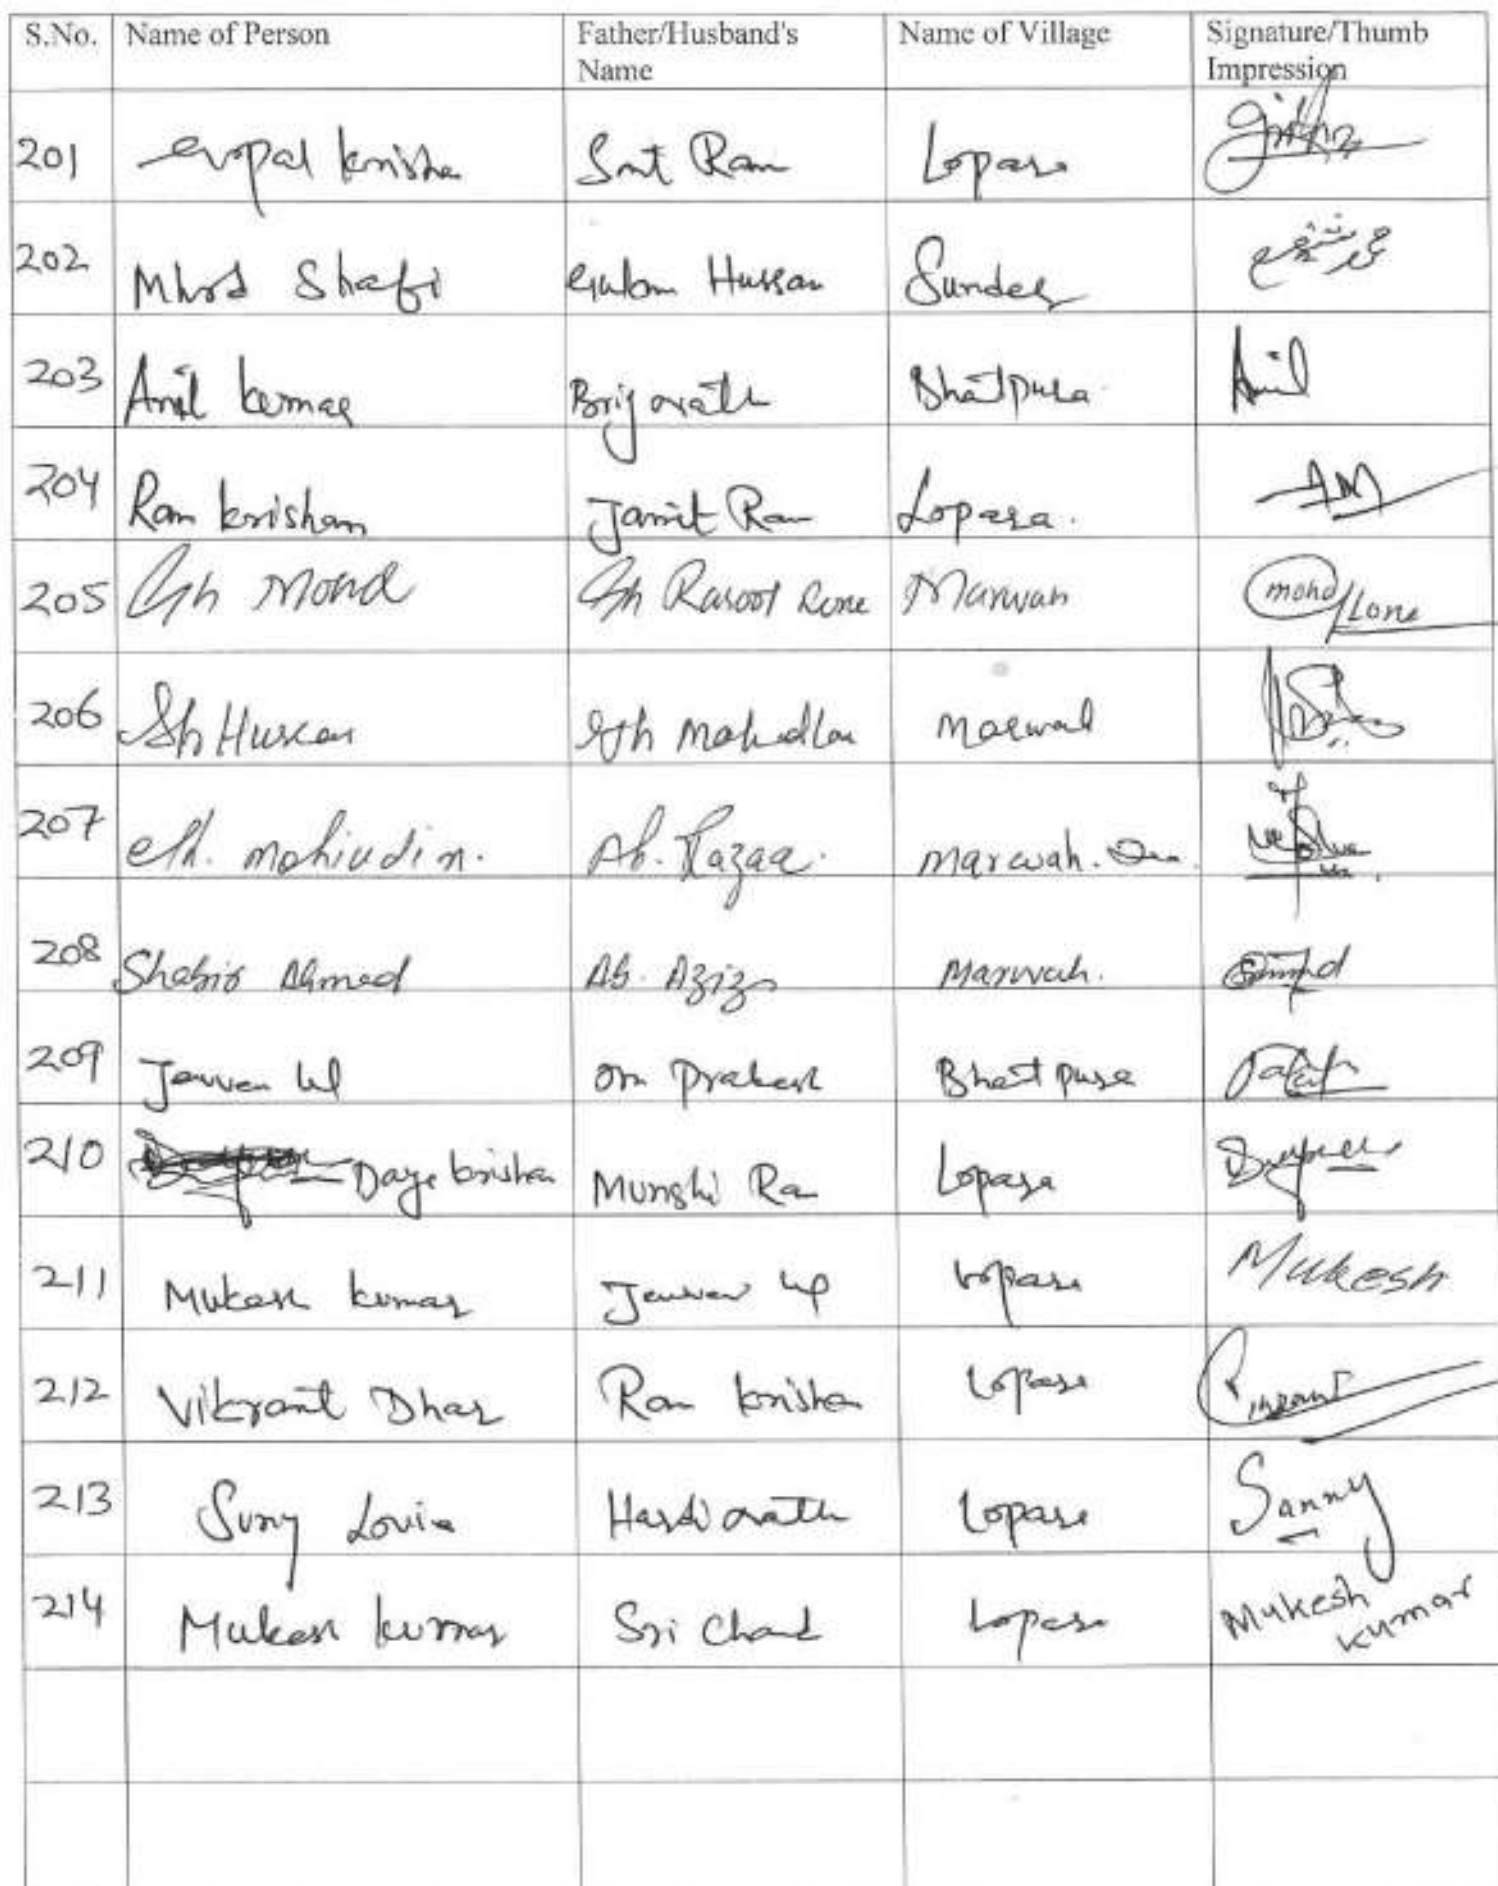 S.No. Name of Person Father/Husband's Name Name of Village Signature/Thumb Impression
201 Gopal krishan Snt Ram Lopara
202 Mhod Shafi Gulam Hussan Sunder محمد شفیع
203 Anil kumar Brij nath Bhatpura Anil
204 Ram krishan Jamit Ram Lopara AM
205 Gh Mohd Gh Rasool Lone Marwah mohd Lone
206 Gh Hussan Gh Mohd Marwah
207 Gh. mohiudin. Ab. Razaq. marwah.
208 Shabir Ahmad Ab. Aziz Marwah.
209 Jeuvan lal Om Prakash Bhatpura
210 Daya krishan Munshi Ram Lopara
211 Mukesh kumar Jeuvan lal Lopara Mukesh
212 Vikrant Dhar Ram krishan Lopara
213 Suny Hardi nath Lopara Sanny
214 Mukesh kumar Sri Chand Lopara Mukesh kumar